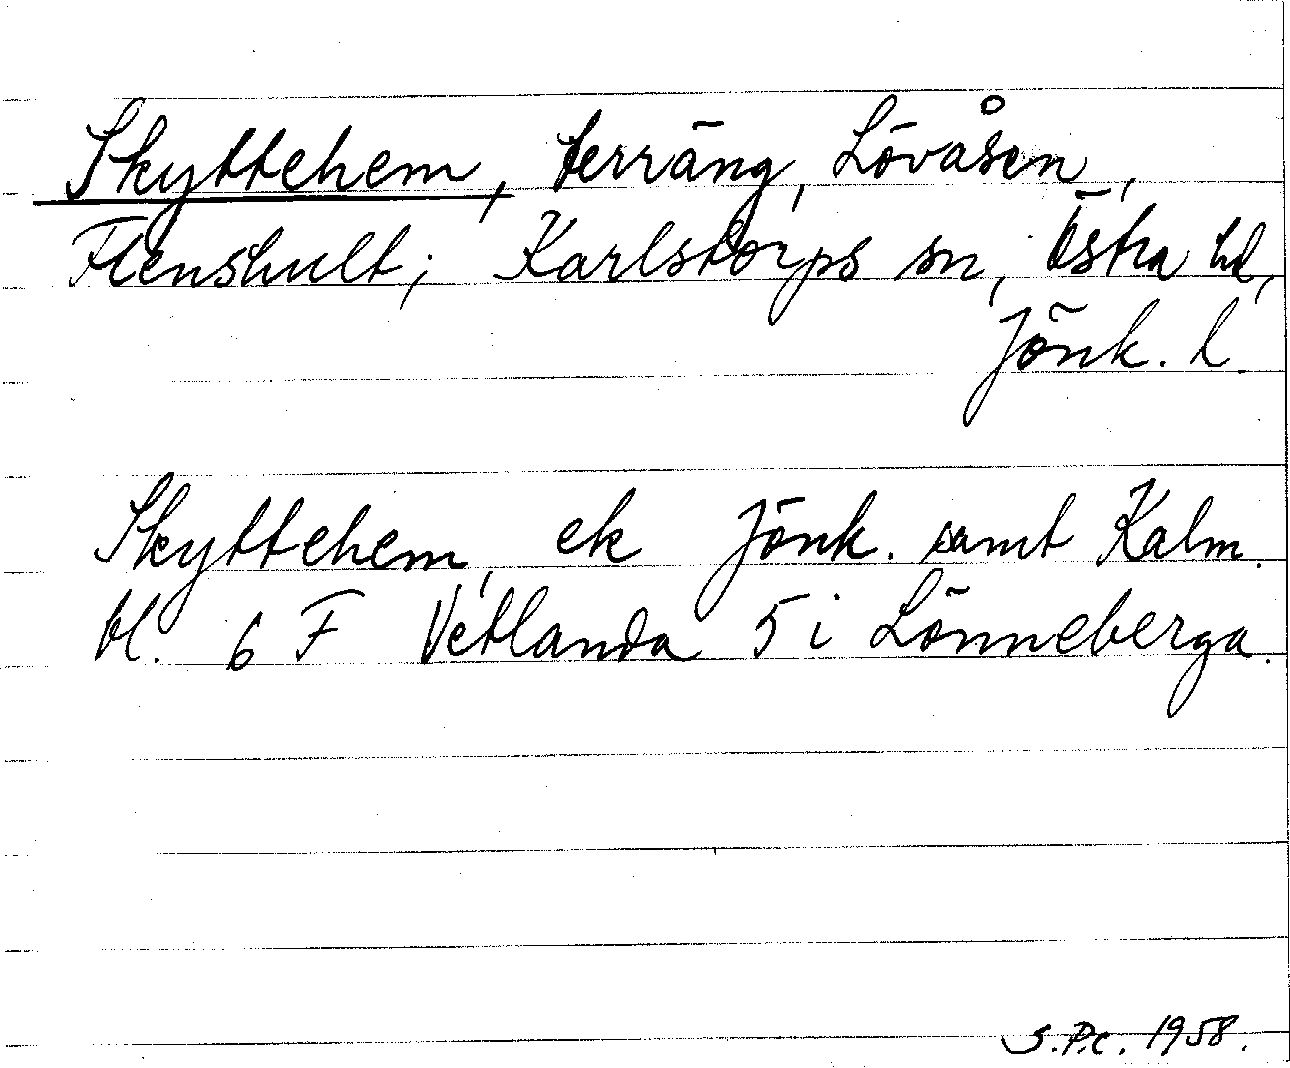 Skyttehem, terräng, Lövåsen,
Flenshult; Karlstorps sn, Östra hd,
Jönk. l.
Skyttehem, ek Jönk. samt Kalm.
bl. 6 F Vetlanda 5 i Lönneberga.
S.P.c. 1958.